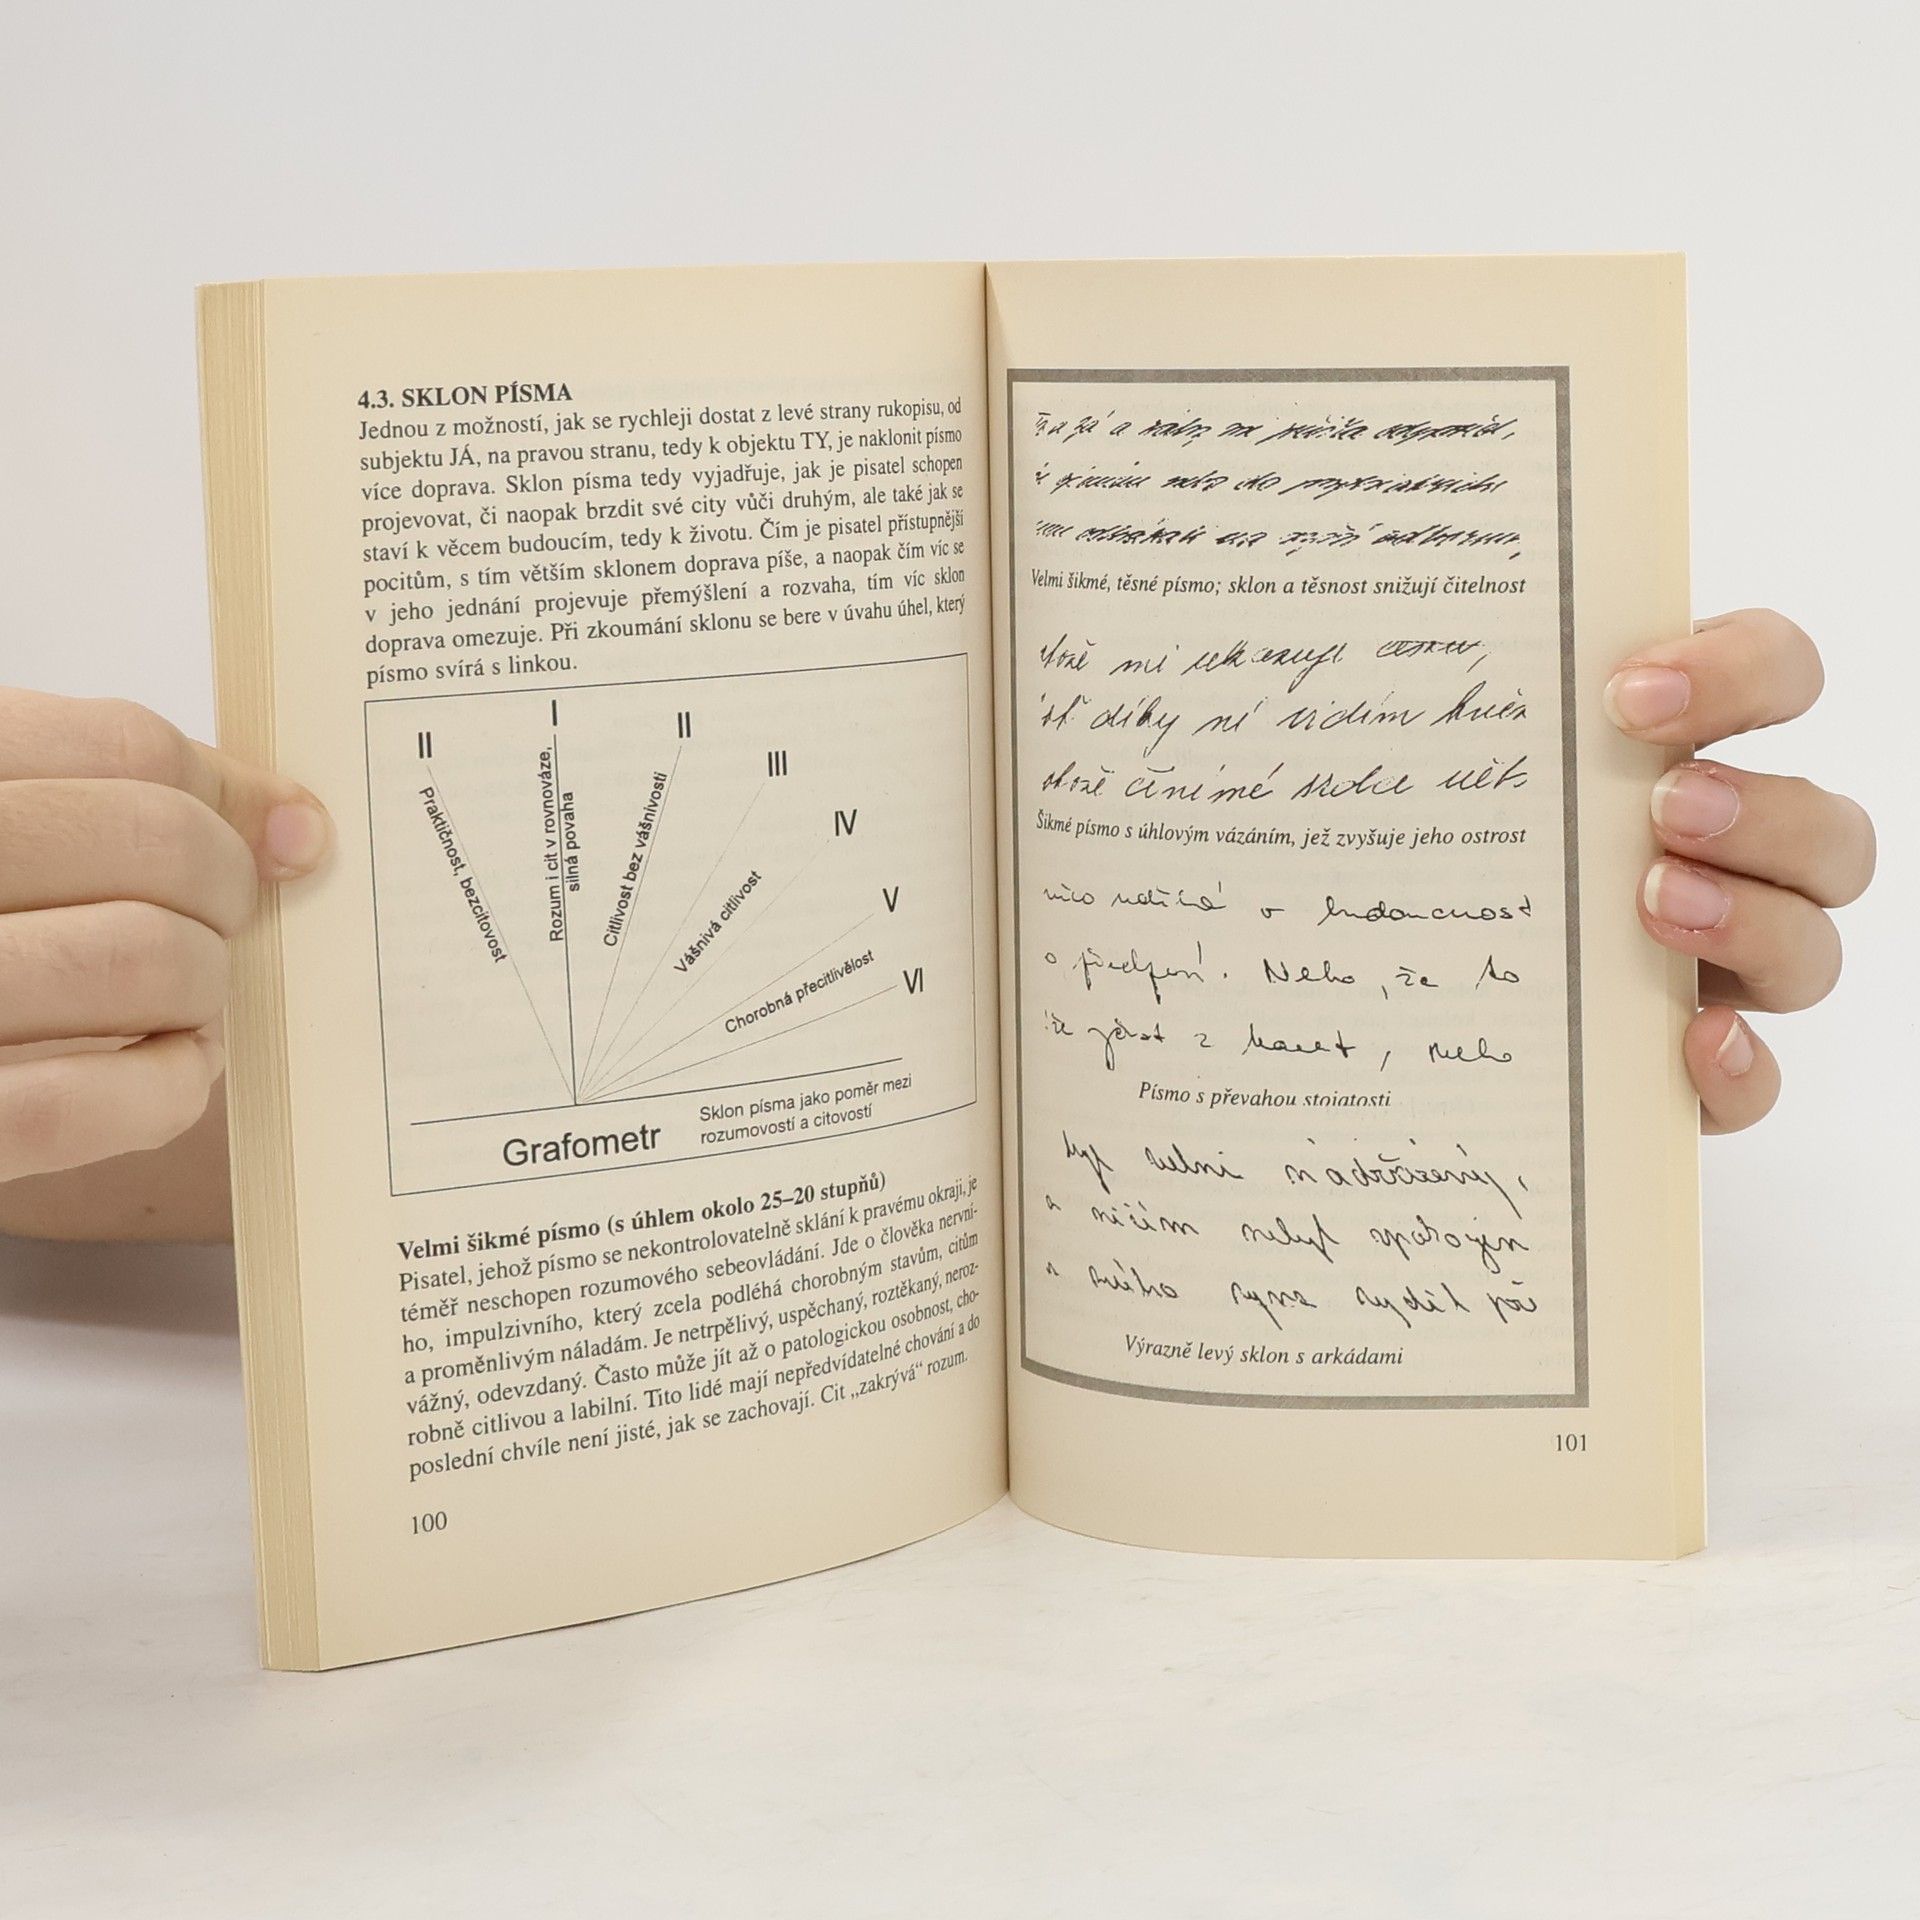 4.3. SKLON PÍSMA
Jednou z možností, jak se rychleji dostat z levé strany rukopisu, od
subjektu JÁ, na pravou stranu, tedy k objektu TY, je naklonit písmo
více doprava. Sklon písma tedy vyjadřuje, jak je pisatel schopen
projevovat, či naopak brzdit své city vůči druhým, ale také jak se
staví k věcem budoucím, tedy k životu. Čím je pisatel přístupnější
pocitům, s tím větším sklonem doprava píše, a naopak čím víc se
v jeho jednání projevuje přemýšlení a rozvaha, tím víc sklon
doprava omezuje. Při zkoumání sklonu se bere v úvahu úhel, který
písmo svírá s linkou.
II
I
II
III
IV
V
VI
Praktičnost, bezcitovost
Rozum i cit v rovnováze,
silná povaha
Citlivost bez vášnivosti
Vášnivá citlivost
Chorobná přecitlivělost
Grafometr
Sklon písma jako poměr mezi
rozumovostí a citovostí
Velmi šikmé písmo (s úhlem okolo 25–20 stupňů)
Pisatel, jehož písmo se nekontrolovatelně sklání k pravému okraji, je
téměř neschopen rozumového sebeovládání. Jde o člověka nervní-
ho, impulzivního, který zcela podléhá chorobným stavům, citům
a proměnlivým náladám. Je netrpělivý, uspěchaný, roztěkaný, neroz-
vážný, odevzdaný. Často může jít až o patologickou osobnost, cho-
robně citlivou a labilní. Tito lidé mají nepředvídatelné chování a do
poslední chvíle není jisté, jak se zachovají. Cit „zakrývá“ rozum.
100
Velmi šikmé, těsné písmo; sklon a těsnost snižují čitelnost
mi ukazuje cestu,
díky ní vidím
činí mé srdce
Šikmé písmo s úhlovým vázáním, jež zvyšuje jeho ostrost
v budoucnost
o předpoví. Nebo, že to
jást z karet, nebo
Písmo s převahou stojatosti
být velmi nadřízený,
a ničím nebyl spokojen
Výrazně levý sklon s arkádami
101